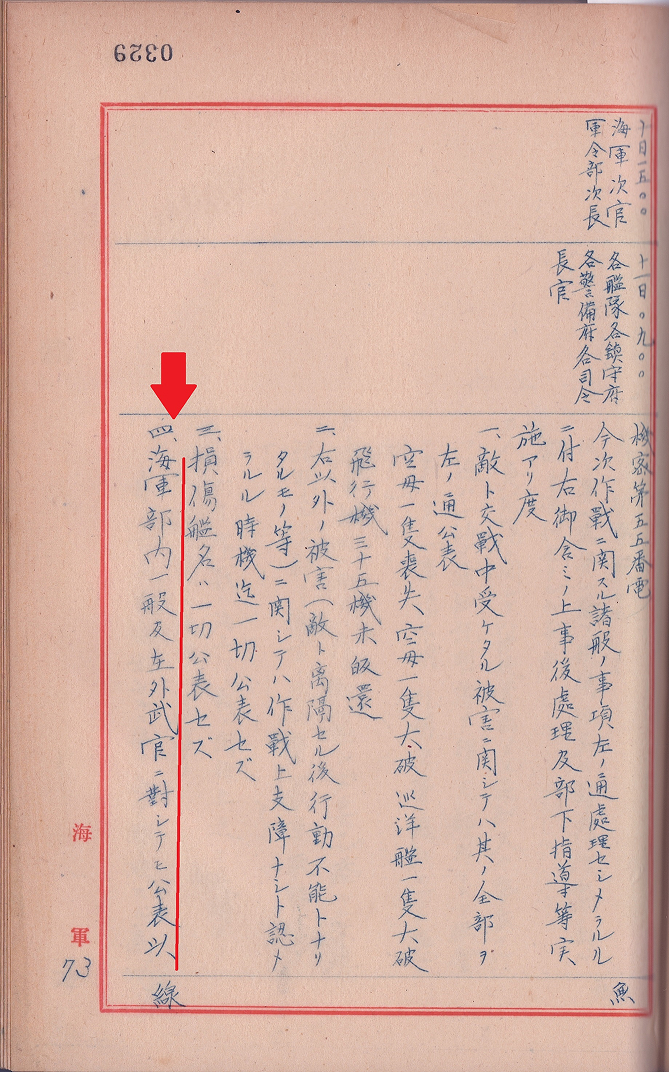 0329
十日一五〇〇
海軍次官
軍令部次長
十一日〇九〇〇
各艦隊各鎮守府
各警備府各司令
長官
機密第五五番電
今次作戰ニ関スル諸般ノ事項左ノ通處理セシメラルル
ニ付右御含ミノ上事後處理及部下指導等実
施アリ度
一、敵ト交戰中受ケタル被害ニ関シテハ其ノ全部ヲ
左ノ通公表
空母一隻喪失、空母一隻大破巡洋艦一隻大破
飛行機三十五機未皈還
二、右以外ノ被害(敵ト离隔セル後行動不能トナリ
タルモノ等)ニ関シテハ作戰上支障ナシト認メ
ラルル時機迄一切公表セズ
三、損傷艦名ハ一切公表セズ
四、海軍部内一般及在外武官ニ對シテモ公表以
魚
線
海軍
73